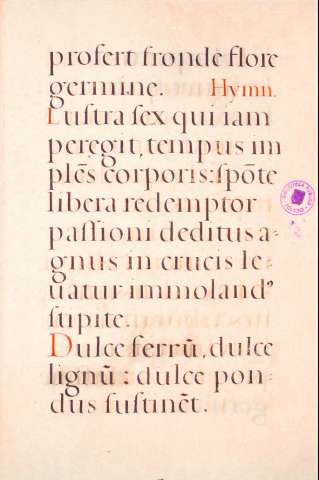 profert fronde flore
germine. Hymn.
Luſtra ſex qui iam
peregit, tempus im
plēs corporis: ſpōte
libera redemptor
paſſioni deditus a-
gnus in crucis le-
uatur immoland⁹
ſtipite.
Dulce ferrū, dulce
lignū : dulce pon-
dus ſuſtinēt.